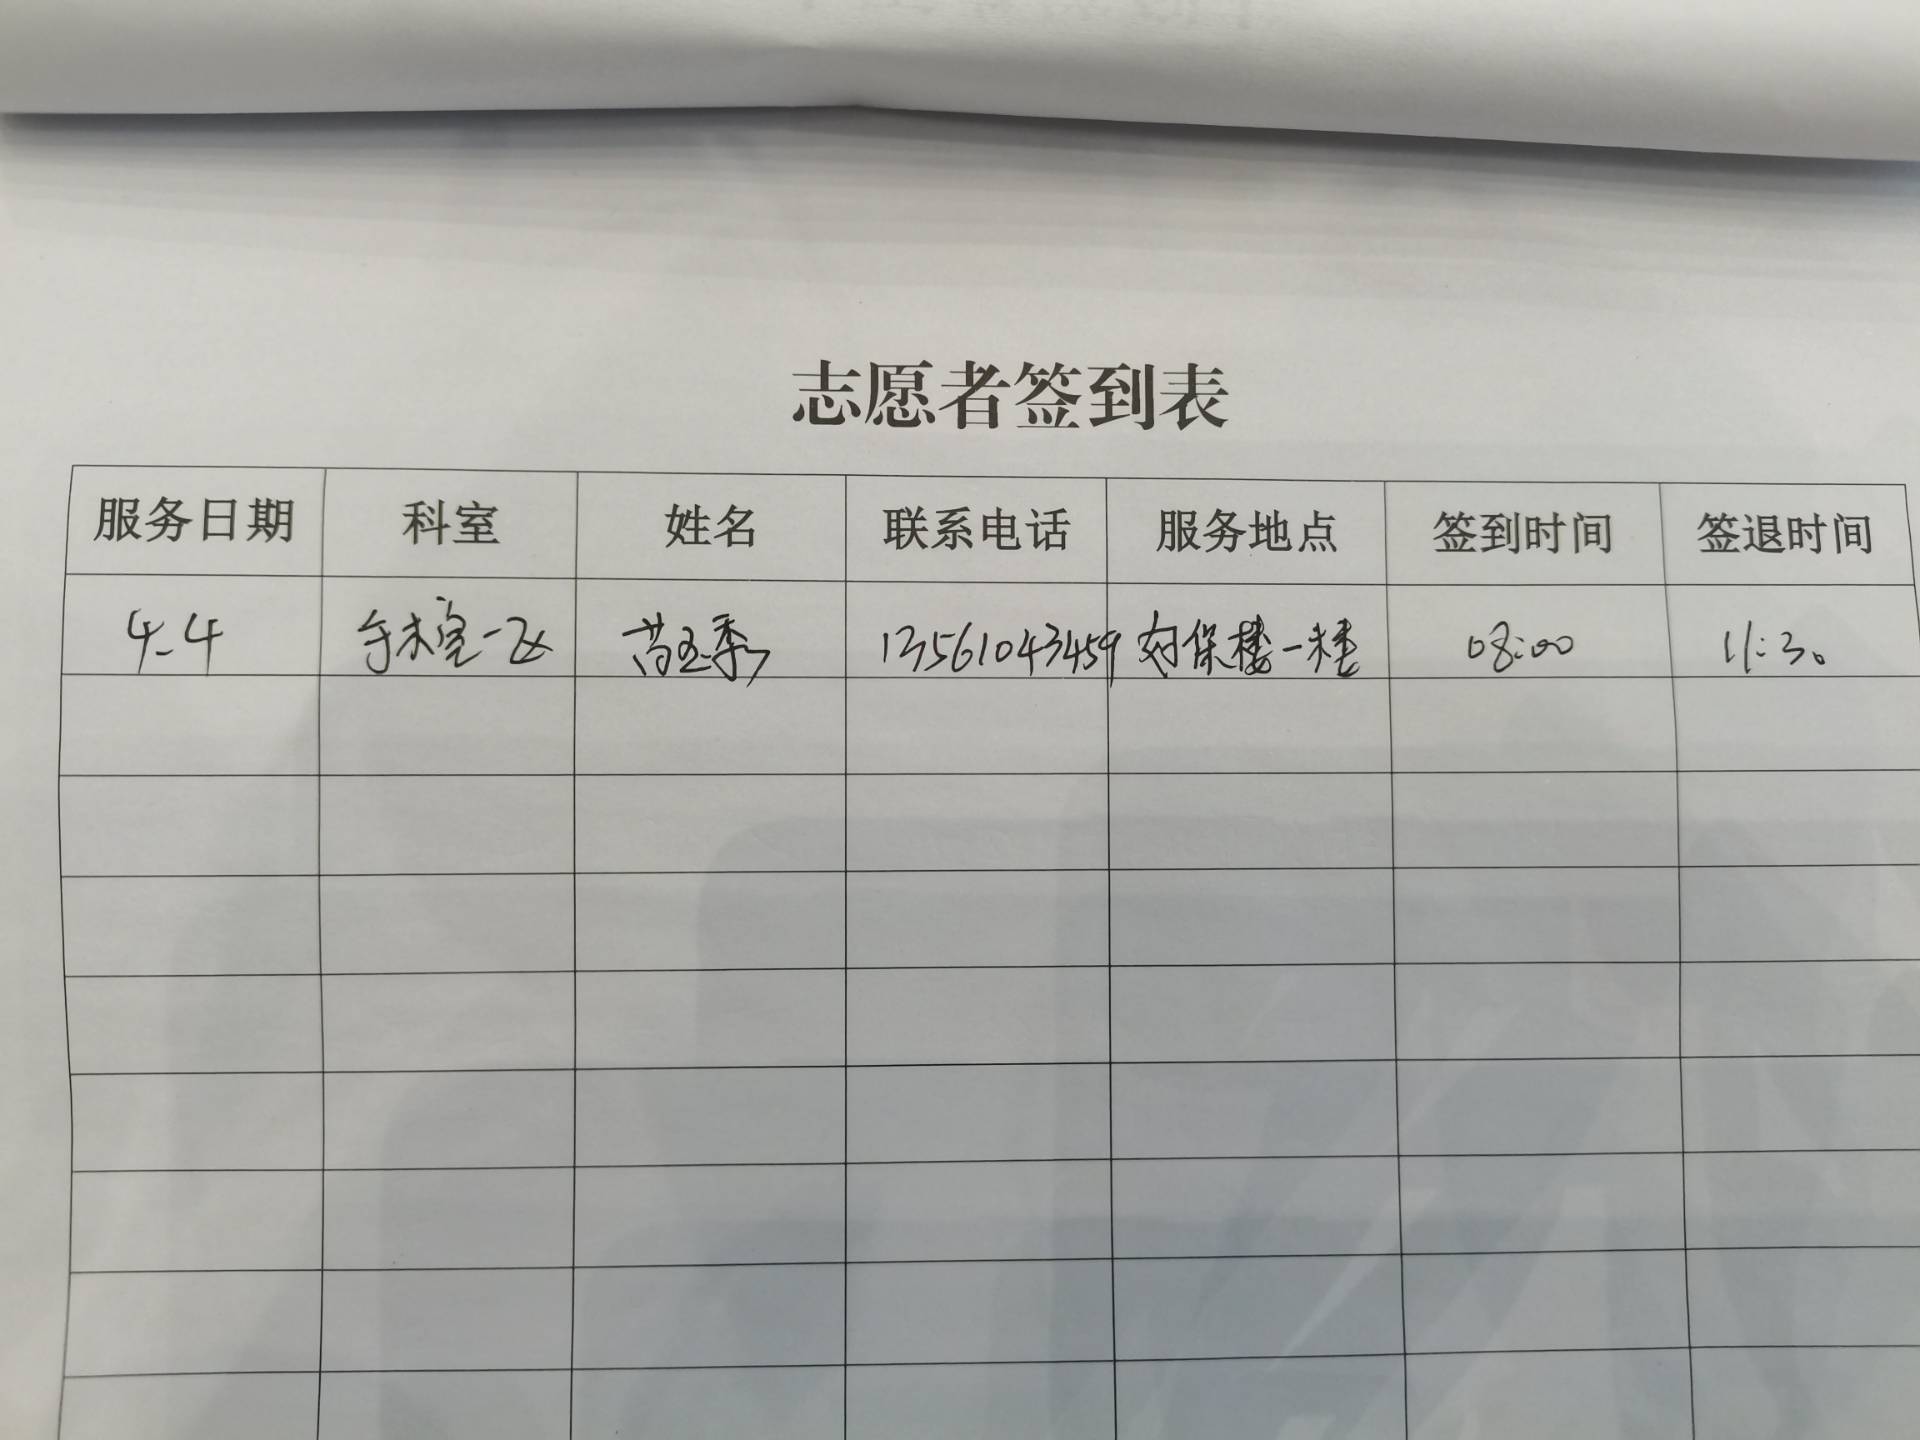 志愿者签到表
服务日期 科室 姓名 联系电话 服务地点 签到时间 签退时间
4-4 手术室一区 苗玉季 13561043459 保楼一楼 08:00 11:30